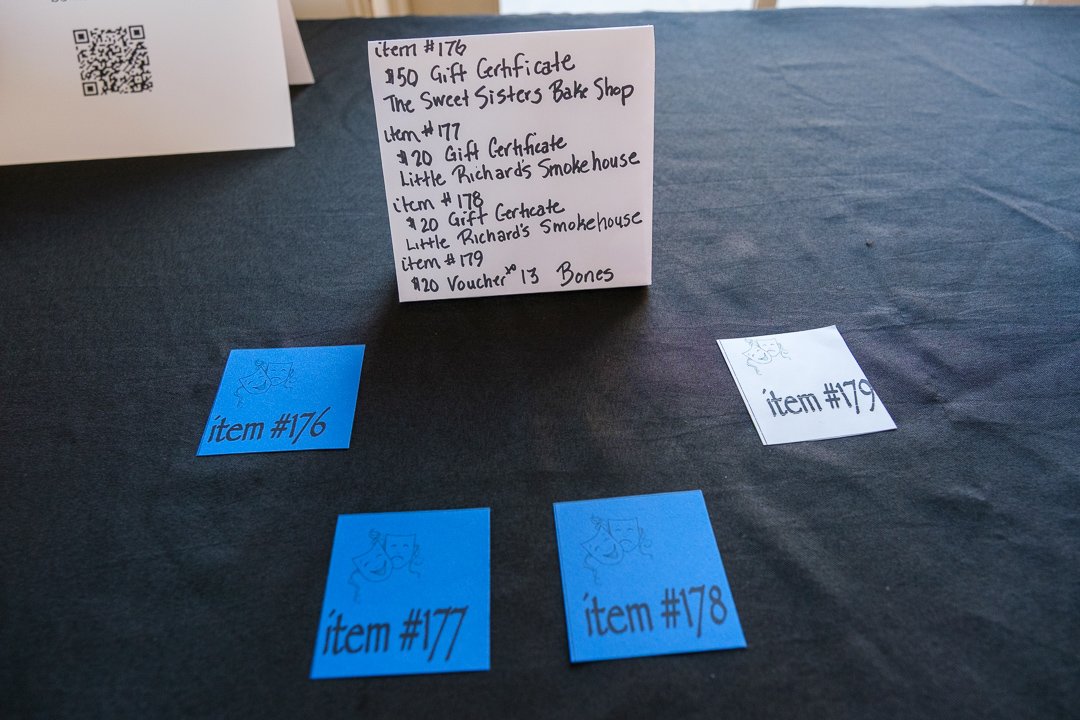 item #176
$50 Gift Certificate
The Sweet Sisters Bake Shop
item #177
$20 Gift Certificate
Little Richard's Smokehouse
item #178
$20 Gift Certicate
Little Richard's Smokehouse
item #179
$20 Voucher to 13 Bones
item #176
item #179
item #177
item #178